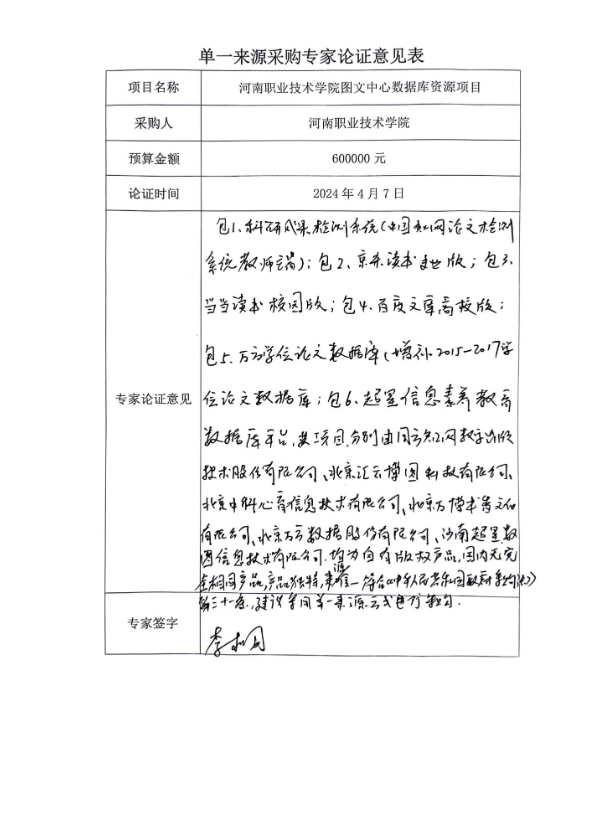 单一来源采购专家论证意见表
项目名称 河南职业技术学院图文中心数据库资源项目
采购人 河南职业技术学院
预算金额 600000 元
论证时间 2024 年 4 月 7 日
专家论证意见
包1、科研成果检测系统(中国知网论文检测
系统教师端);包2、京东读书专业版;包3、
当当读书校园版;包4、百度文库高校版;
包5、万方学位论文数据库(增补2015-2017学
位论文数据库;包6、超星信息素养教育
数据库平台,该项目分别由同方知网数字出版
技术股份有限公司、北京汇云博图科技有限公司、
北京中科心育信息技术有限公司、北京万博书香文化
有限公司、北京万方数据股份有限公司、河南超星数
图信息技术有限公司.均为自有版权产品,国内无完
全相同产品,产品独特,来源唯一符合《中华人民共和国政府采购法》
第三十一条,建议采用单一来源方式进行采购.
专家签字